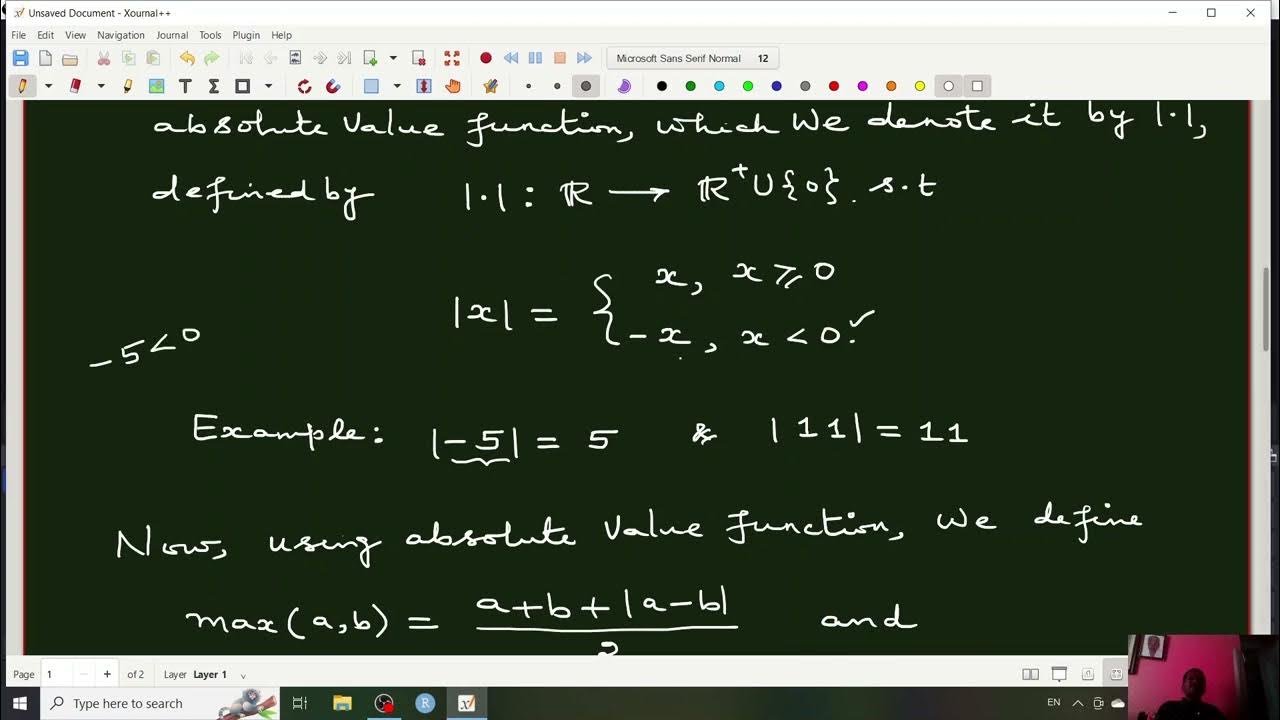 Unsaved Document - Xournal++
File Edit View Navigation Journal Tools Plugin Help
Microsoft Sans Serif Normal 12
absolute value function, which we denote it by |·|,
defined by |·| : ℝ → ℝ⁺∪{0}. s.t
|x| = { x, x ⩾ 0
-x, x < 0.✓
-5<0
Example: |-5| = 5 & |11| = 11
Now, using absolute value function, we define
max(a,b) = a+b+|a-b| and
Page 1 of 2 Layer Layer 1
Type here to search
EN